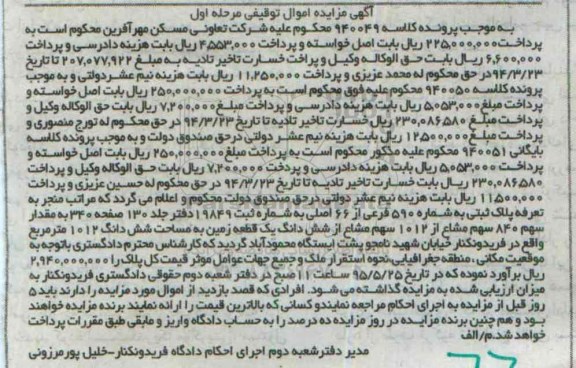 آگهی مزایده اموال توقیفی مرحله اول
به موجب پرونده کلاسه ۹۴۰۰۴۹ محکوم علیه شرکت تعاونی مسکن مهر آفرین محکوم است به
پرداخت ۲۲۵,۰۰۰,۰۰۰ ریال بابت اصل خواسته و پرداخت ۴,۵۵۳,۰۰۰ ریال بابت هزینه دادرسی و پرداخت
۶,۶۰۰,۰۰۰ ریال بابت حق الوکاله وکیل و پراخت خسارت تاخیر تادیه به مبلغ ۲۰۷,۰۷۷,۹۲۲ ریال تا تاریخ
۹۴/۳/۲۳ در حق محکوم له محمد عزیزی و پرداخت ۱۱,۲۵۰,۰۰۰ ریال بابت هزینه نیم عشر دولتی و به موجب
پرونده کلاسه ۹۴۰۰۵۰ محکوم علیه فوق محکوم است به پرداخت ۲۵۰,۰۰۰,۰۰۰ ریال بابت اصل خواسته و
پرداخت مبلغ ۵,۰۵۳,۰۰۰ ریال بابت هزینه دادرسی و پرداخت مبلغ ۷,۲۰۰,۰۰۰ ریال بابت حق الوکاله وکیل و
پرداخت مبلغ ۲۳۰,۰۸۶۵۸۰ ریال خسارت تاخیر تادیه تا تاریخ ۹۴/۳/۲۳ در حق محکوم له تورج منصوری و
پرداخت مبلغ ۱۲۵۰۰,۰۰۰ ریال بابت هزینه نیم عشر دولتی در حق صندوق دولت و به موجب پرونده کلاسه
بایگانی ۹۴۰۰۵۱ محکوم علیه مذکور محکوم است به پرداخت مبلغ ۲۵۰,۰۰۰,۰۰۰ ریال بابت اصل خواسته و
پرداخت ۵,۰۵۳,۰۰۰ ریال بابت هزینه دادرسی و پرداخت ۷,۲۰۰,۰۰۰ ریال بابت حق الوکاله وکیل و پرداخت
۲۳۰,۰۸۶۵۸۰ ریال بابت خسارت تاخیر تادیه تا تاریخ ۹۴/۳/۲۳ در حق محکوم له حسین عزیزی و پرداخت
۱۱۵۰۰,۰۰۰ ریال بابت هزینه نیم عشر دولتی درحق صندوق دولت محکوم و اعلام می گردد که مراتب منجر به
تعرفه پلاک ثبتی به شماره ۵۹۰ فرعی از ۶۶ اصلی به شماره ثبت ۱۹۸۴۹ دفتر جلد ۱۳۰ صفحه ۳۴۰ به مقدار
سهم ۸۴۰ سهم مشاع از ۱۰۱۲ سهم مشاع از شش دانگ یک قطعه زمین به مساحت شش دانگ ۱۰۱۲ مترمربع
واقع در فریدونکنار خیابان شهید نامجو پشت ایستگاه محمودآباد گردید که کارشناس محترم دادگستری باتوجه به
موقعیت مکانی، منطقه جغرافیایی، نحوه استقرار ملک و جمیع جهات عوامل موثر قیمت کل پلاک را ۲,۹۴۰,۰۰۰,۰۰۰
ریال برآورد نموده که در تاریخ ۹۵/۵/۲۵ ساعت ۱۱ صبح در دفتر شعبه دوم حقوقی دادگستری فریدونکنار به
میزان ارزیابی شده به مزایده گذاشته می شود. افرادی که قصد بازدید از اموال مورد مزایده را دارند باید ۵
روز قبل از مزایده به اجرای احکام مراجعه نمایندو کسانی که بالاترین قیمت را ارائه نمایند برنده مزایده خواهند
بود و هم چنین برنده مزایده در روز مزایده ده درصد را به حساب دادگاه واریز و مابقی طبق مقررات پرداخت
خواهد شد.م/الف
مدیر دفترشعبه دوم اجرای احکام دادگاه فریدونکنار-خلیل پورمرزونی